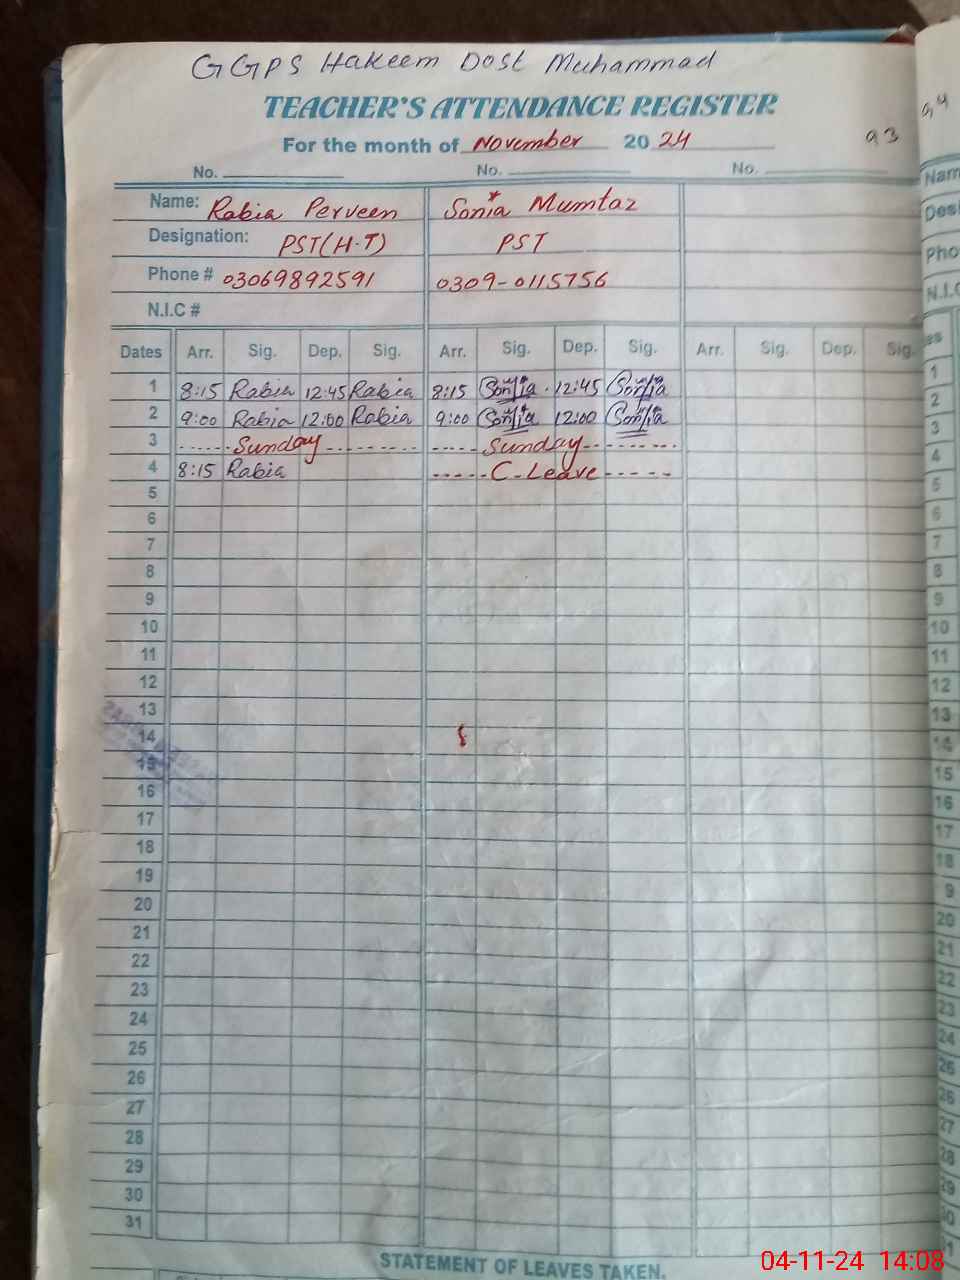 GGPS Hakeem Dost Muhammad
TEACHER'S ATTENDANCE REGISTER
For the month of November 2024 93
No. No. No.
Name: Rabia Perveen Sonia Mumtaz
Designation: PST(H.T) PST
Phone # 03069892591 0309-0115756
N.I.C #
Dates Arr. Sig. Dep. Sig. Arr. Sig. Dep. Sig. Arr. Sig. Dep. Sig.
1 8:15 Rabia 12:45 Rabia 8:15 Sonia 12:45 Sonia
2 9:00 Rabia 12:00 Rabia 9:00 Sonia 12:00 Sonia
3 Sunday Sunday
4 8:15 Rabia C-Leave
5
6
7
8
9
10
11
12
13
14
15
16
17
18
19
20
21
22
23
24
25
26
27
28
29
30
31
STATEMENT OF LEAVES TAKEN.
04-11-24 14:08